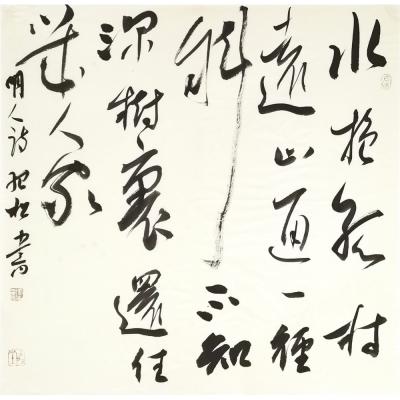 水抱孤村
遠山通一徑
斜不知
深樹裏還住
幾人家
明人詩 松書